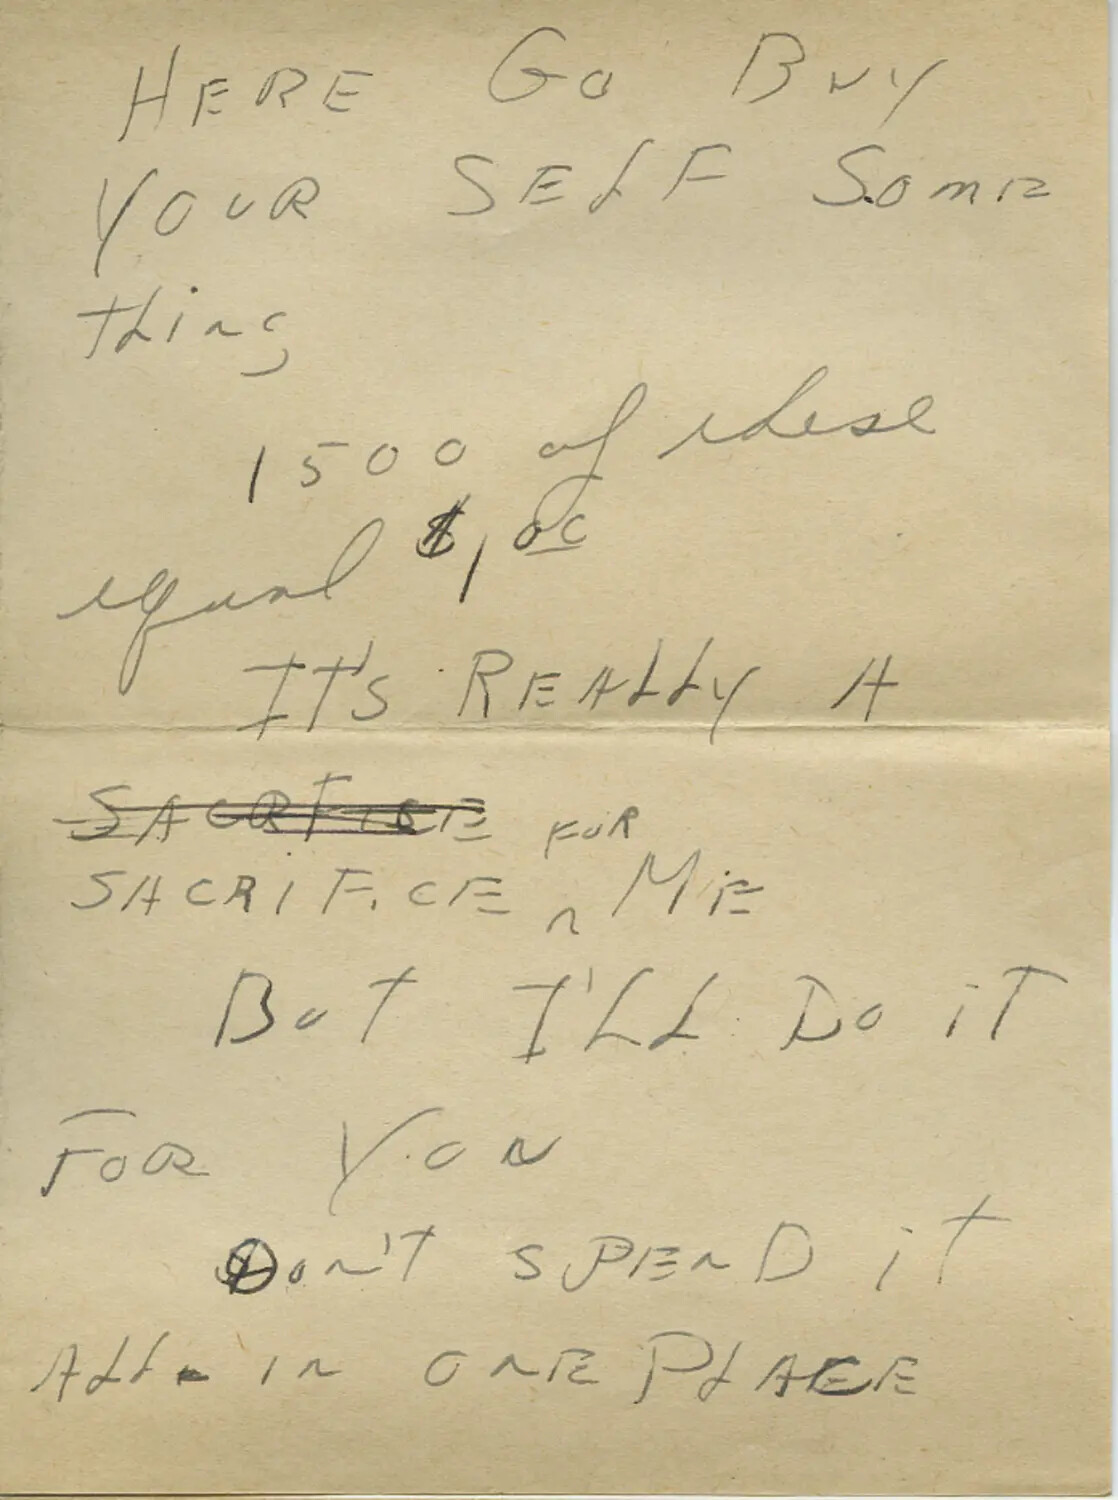 HERE GO BUY
YOUR SELF SOME
thing
1500 of these
equal $1,00
IT'S REALLY A
SACRFICE FOR
SACRIFICE ^ ME
BUT I'LL DO iT
FOR YOU
DON'T SPEND iT
ALL IN ONE PLACE